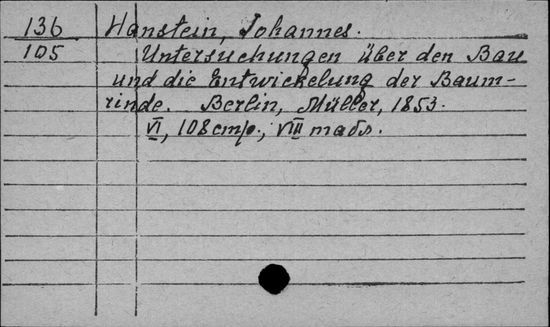 136 Hanstein, Johannes.
105 Untersuchungen über den Bau
und die Entwickelung der Baum-
rinde. Berlin, Müller, 1853.
VI, 108 стр., VIII табл.